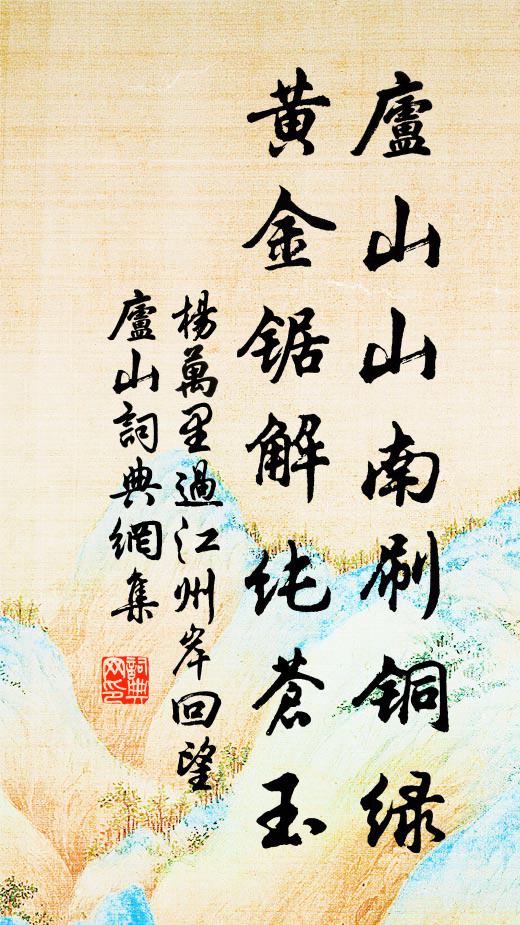 廬山山南刷铜绿
黃金锯解纯蒼玉
楊萬里過江州岸回望
廬山詞典網集
詞典
网印